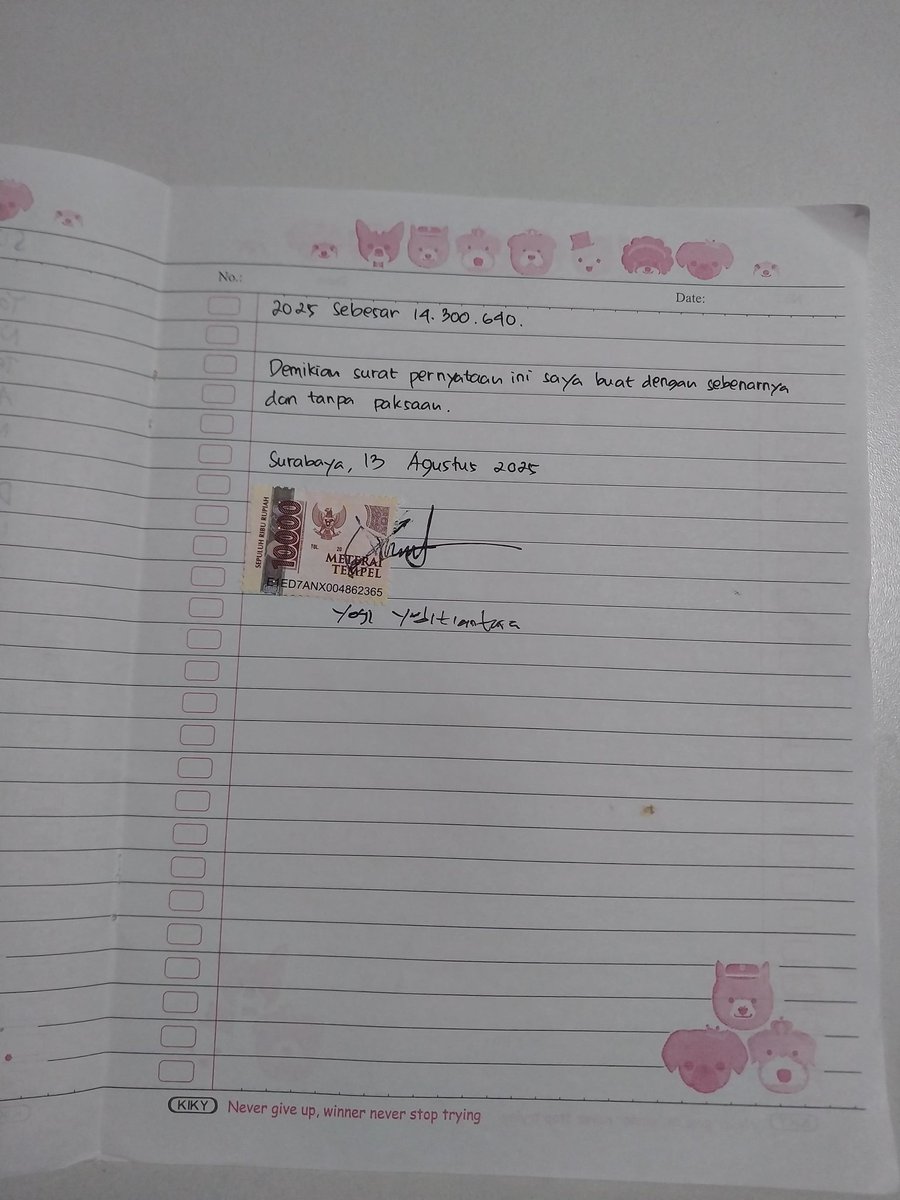 No.:
Date:
2025 sebesar 14.300.640.
Demikian surat pernyataan ini saya buat dengan sebenarnya
dan tanpa paksaan.
Surabaya, 13 Agustus 2025
SEPULUH RIBU RUPIAH
10000
TGL. 20
METERAI
TEMPEL
E4ED7ANX004862365
Yogi Yuditiantara
KIKY Never give up, winner never stop trying